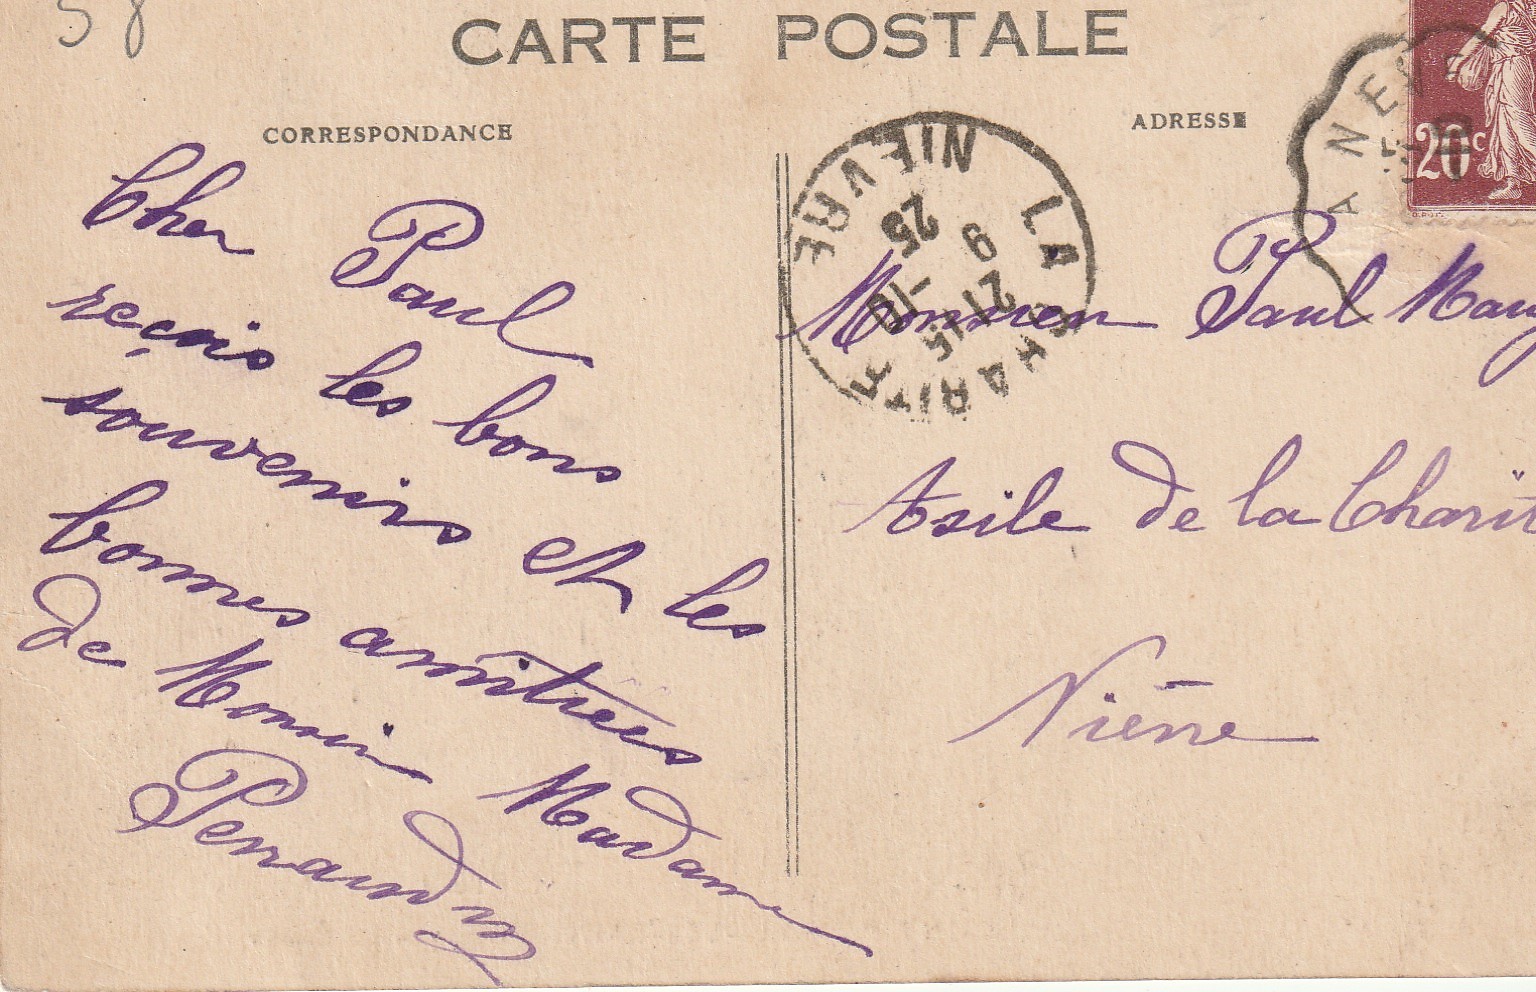 58
CARTE POSTALE
CORRESPONDANCE
ADRESSE
Cher Paul
reçois les bons
souvenirs et les
bonnes amitiées
de Monsieur Madame
LA CHARITÉ
NIEVRE
21 15
9 -10
25
A NEV
20c
Monsieur Paul
Asile de la Charit
Nièvre